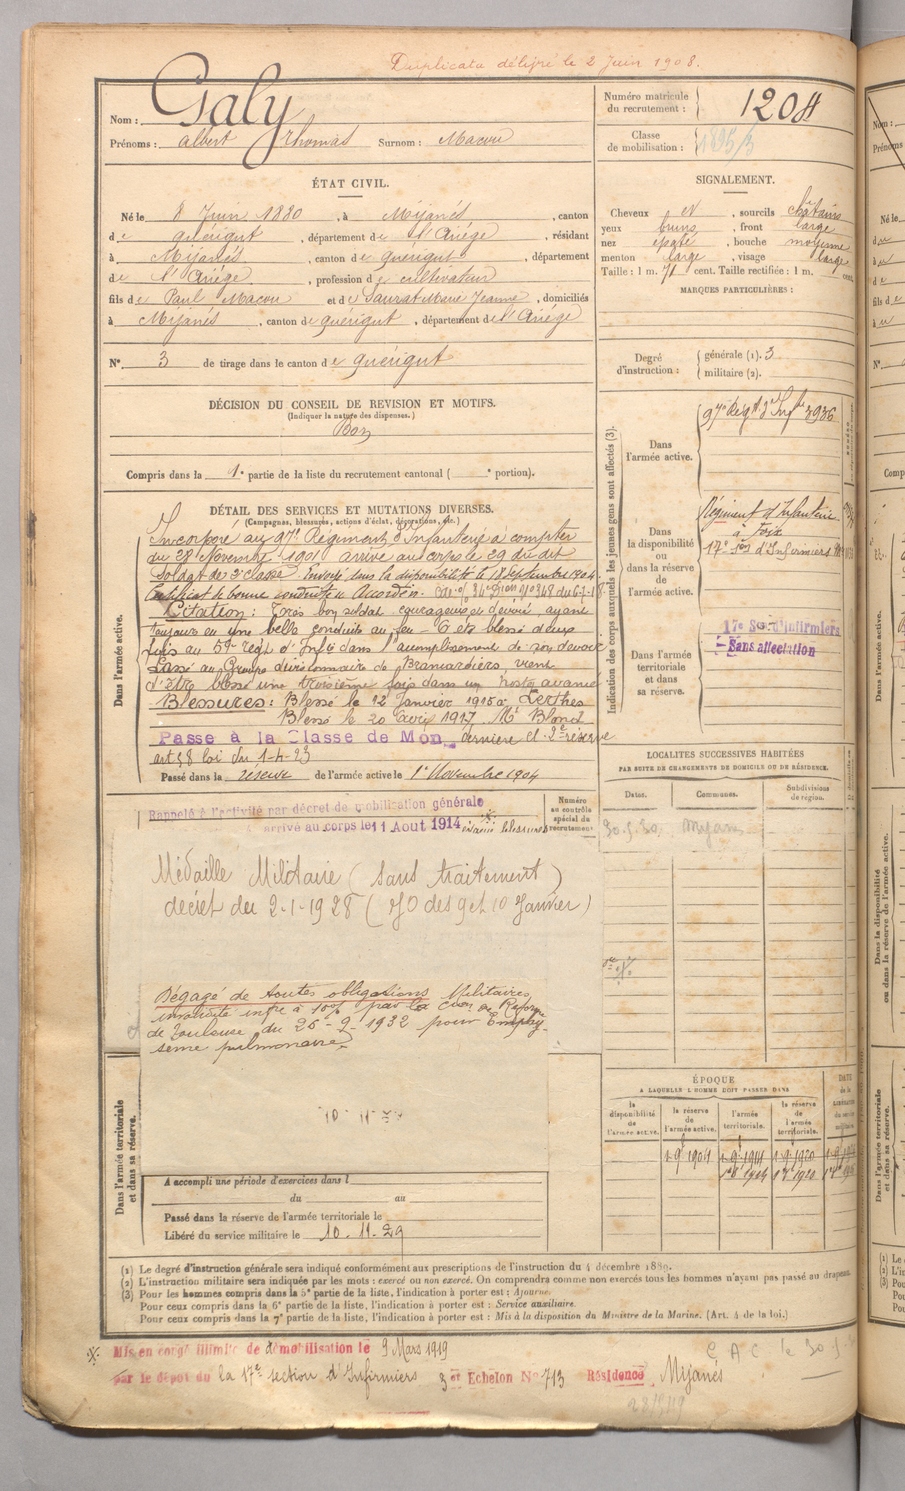 Duplicata délivré le 2 Juin 1908.
Nom : Galy
Prénoms : Albert Thomas Surnom : Macou
Numéro matricule du recrutement : 1204
Classe de mobilisation : 1895/3
ÉTAT CIVIL.
Né le 8 Juin 1880, à Mijanès, canton
de Quérigut, département de l'Ariége, résidant
à Mijanès, canton de Quérigut, département
de l'Ariége, profession de cultivateur
fils de Paul Macou et de Saurat Marie Jeanne, domiciliés
à Mijanès, canton de Quérigut, département de l'Ariége
N° 3 de tirage dans le canton de Quérigut
SIGNALEMENT.
Cheveux et, sourcils châtains
yeux bruns, front large
nez épaté, bouche moyenne
menton large, visage large
Taille : 1 m. 71 cent. Taille rectifiée : 1 m. cent.
MARQUES PARTICULIÈRES :
Degré d'instruction : générale (1). 3
militaire (2).
DÉCISION DU CONSEIL DE REVISION ET MOTIFS.
(Indiquer la nature des dispenses.)
Bon
Compris dans la 1e partie de la liste du recrutement cantonal ( e portion).
DÉTAIL DES SERVICES ET MUTATIONS DIVERSES.
(Campagnes, blessures, actions d'éclat, décorations, etc.)
Dans l'armée active.
Incorporé au 97e Régiment d'Infanterie à compter
du 28 Novembre 1901 arrivé au corps le 29 du dit
Soldat de 2e classe. Envoyé dans la disponibilité le 18 Septembre 1904.
Certificat de bonne conduite Accordé.
Citation : Très bon soldat courageux et dévoué, ayant
toujours eu une belle conduite au feu - A été blessé deux
fois au 59e regt d'Infie dans l'accomplissement de son devoir
Passé au Groupe divisionnaire de Brancardiers, vient
d'être blessé une troisième fois dans un poste avancé
Blessures : Blessé le 12 Janvier 1915 à Perthes
Blessé le 20 avril 1917 Mt Blond
Passe à la Classe de Mob dernière cl. 2e réserve
art 58 loi du 1-4-23
Passé dans la réserve de l'armée active le 1er Novembre 1904
Indication des corps auxquels les jeunes gens sont affectés (3).
Dans l'armée active. 97e Regt d'Infie 3936
Dans la disponibilité ou dans la réserve de l'armée active. Régiment d'Infanterie à Foix
17e Son d'Infirmiers
Dans l'armée territoriale et dans sa réserve. 17e Son d'Infirmiers
Sans affectation
Rappelé à l'activité par décret de mobilisation générale
arrivé au corps le 11 Aout 1914
Numéro au contrôle spécial du recrutement
Médaille Militaire ( sans traitement )
décret du 2-1-1928 ( JO des 9 et 10 Janvier )
Dégagé de toutes obligations Militaires
invalidité infre à 10% par la Con de Réforme
de Toulouse du 26-9-1932 pour Emphy-
sème pulmonaire
LOCALITÉS SUCCESSIVES HABITÉES
PAR SUITE DE CHANGEMENTS DE DOMICILE OU DE RÉSIDENCE.
Dates. Communes. Subdivisions de région.
30.5.30. Mijanes
ÉPOQUE
A LAQUELLE L'HOMME DOIT PASSER DANS
la disponibilité de l'armée active. la réserve de l'armée active. l'armée territoriale. la réserve de l'armée territoriale.
1 9e 1904 1 9e 1911 1 9e 1920
Dans l'armée territoriale et dans sa réserve.
A accompli une période d'exercices dans l
du au
Passé dans la réserve de l'armée territoriale le
Libéré du service militaire le 10-11-29
(1) Le degré d'instruction générale sera indiqué conformément aux prescriptions de l'instruction du 4 décembre 1889.
(2) L'instruction militaire sera indiquée par les mots : exercé ou non exercé. On comprendra comme non exercés tous les hommes n'ayant pas passé au drapeau.
(3) Pour les hommes compris dans la 5e partie de la liste, l'indication à porter est : Ajourné.
Pour ceux compris dans la 6e partie de la liste, l'indication à porter est : Service auxiliaire.
Pour ceux compris dans la 7e partie de la liste, l'indication à porter est : Mis à la disposition du Ministre de la Marine. (Art. 4 de la loi.)
Mis en congé illimité de démobilisation le 9 Mars 1919
par le dépôt du la 17e section d'Infirmiers 3e Echelon N° 713 Résidence Mijanès